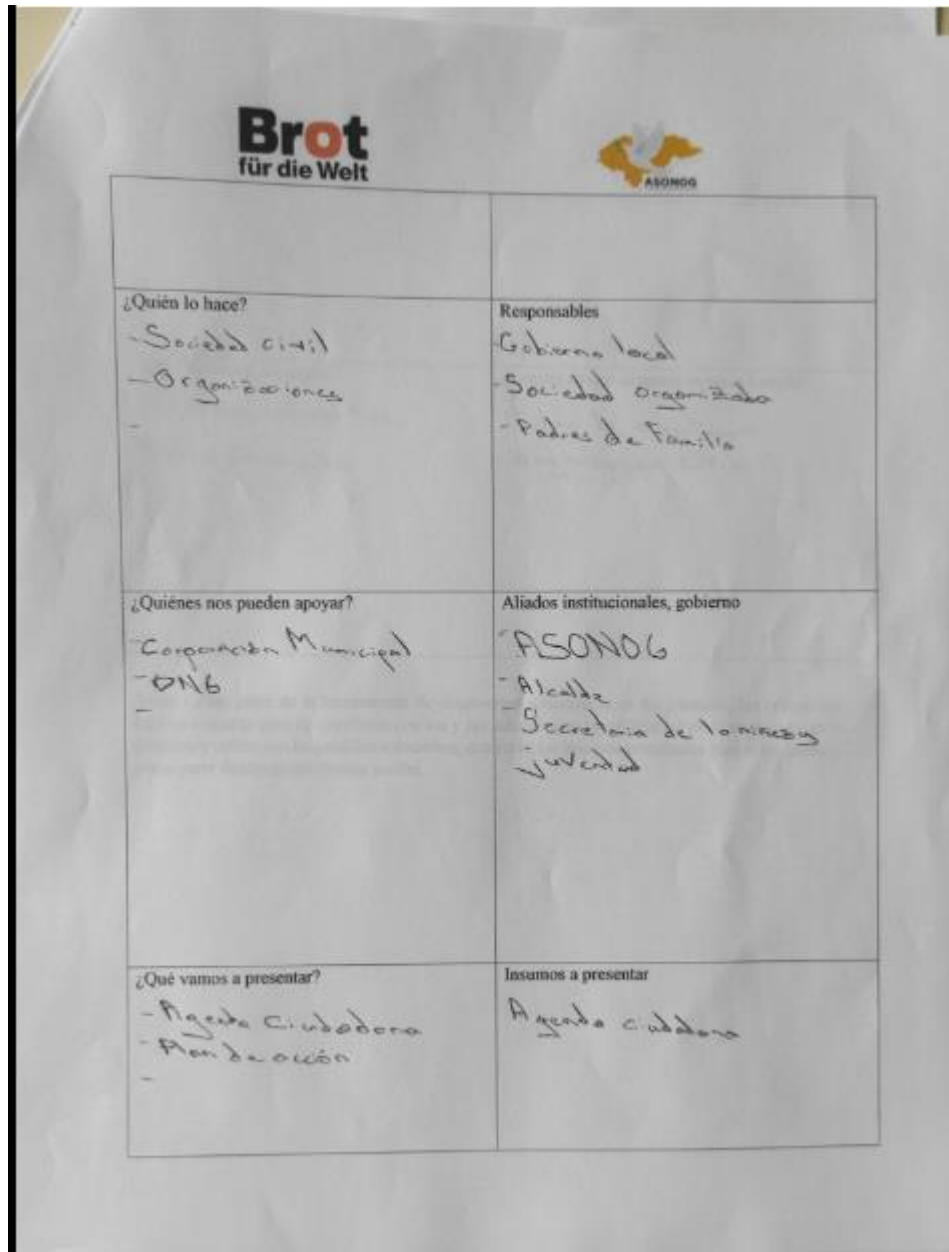 Brot
für die Welt
ASONOG
¿Quién lo hace?
- Sociedad civil
- Organizaciones
-
Responsables
- Gobierno local
- Sociedad organizada
- Padres de Familia
¿Quiénes nos pueden apoyar?
- Corporación Municipal
- ONG
-
Aliados institucionales, gobierno
- ASONOG
- Alcalde
- Secretaria de la niñez y
juventud
¿Qué vamos a presentar?
- Agenda Ciudadana
- Plan de acción
-
Insumos a presentar
Agenda ciuddana